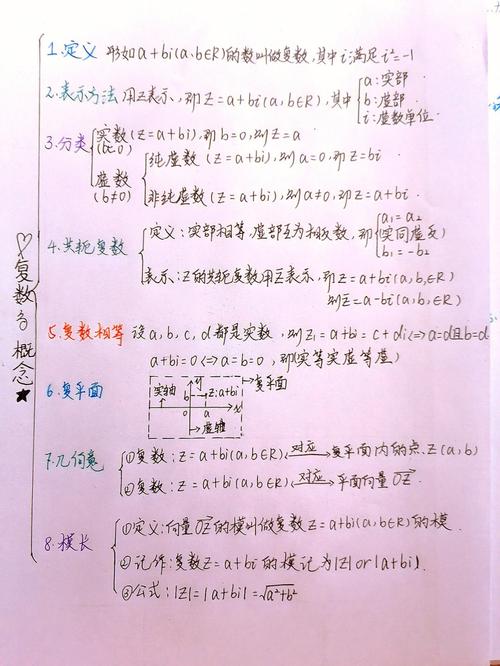 ♡复数の概念★
1.定义 形如a+bi(a、b∈R)的数叫做复数,其中i满足i²=-1
2.表示方法 用Z表示,即Z=a+bi(a,b∈R),其中
a:实部
b:虚部
i:虚数单位.
3.分类
实数(Z=a+bi),即b=0,则Z=a
(b=0)
虚数
(b≠0)
纯虚数(Z=a+bi),则a=0,即Z=bi
非纯虚数(Z=a+bi),则a≠0,即Z=a+bi.
4.共轭复数
定义:实部相等,虚部互为相反数,即(实同虚反)
a₁=a₂
b₁=-b₂
表示:Z的共轭复数用Z̅表示,即Z=a+bi(a,b,∈R)
则Z̅=a-bi(a,b,∈R)
5.复数相等 设a,b,c,d都是实数,则Z₁=a+bi=c+di<=>a=d且b=d
a+bi=0<=>a=b=0,即(实等实虚等虚)
6.复平面
实轴 y b z:a+bi 0 a x 虚轴
复平面
7.几何意
①复数:Z=a+bi(a,b∈R) 对应 复平面内的点Z(a,b)
②复数:Z=a+bi(a,b∈R) 对应 平面向量OZ.
8.模长
①定义:向量OZ的模叫做复数Z=a+bi(a,b∈R)的模.
②记作:复数Z=a+bi的模记为|Z|or|a+bi|.
③公式:|Z|=|a+bi|=√a²+b²